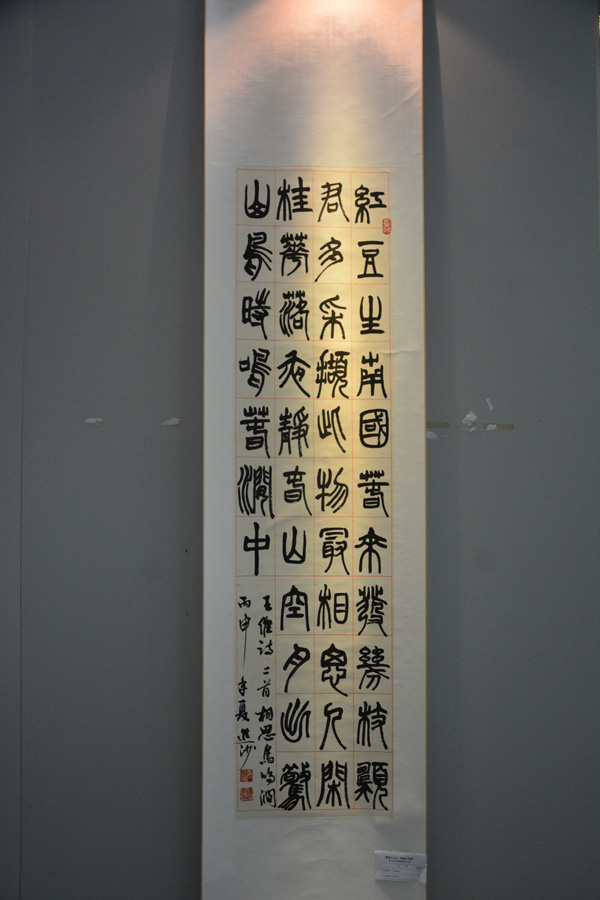 紅豆生南國春來發幾枝願
君多采擷此物最相思人閑
桂華落夜靜春山空月出驚
山鳥時鳴春澗中
王維詩二首相思鳥鳴澗
丙申年夏